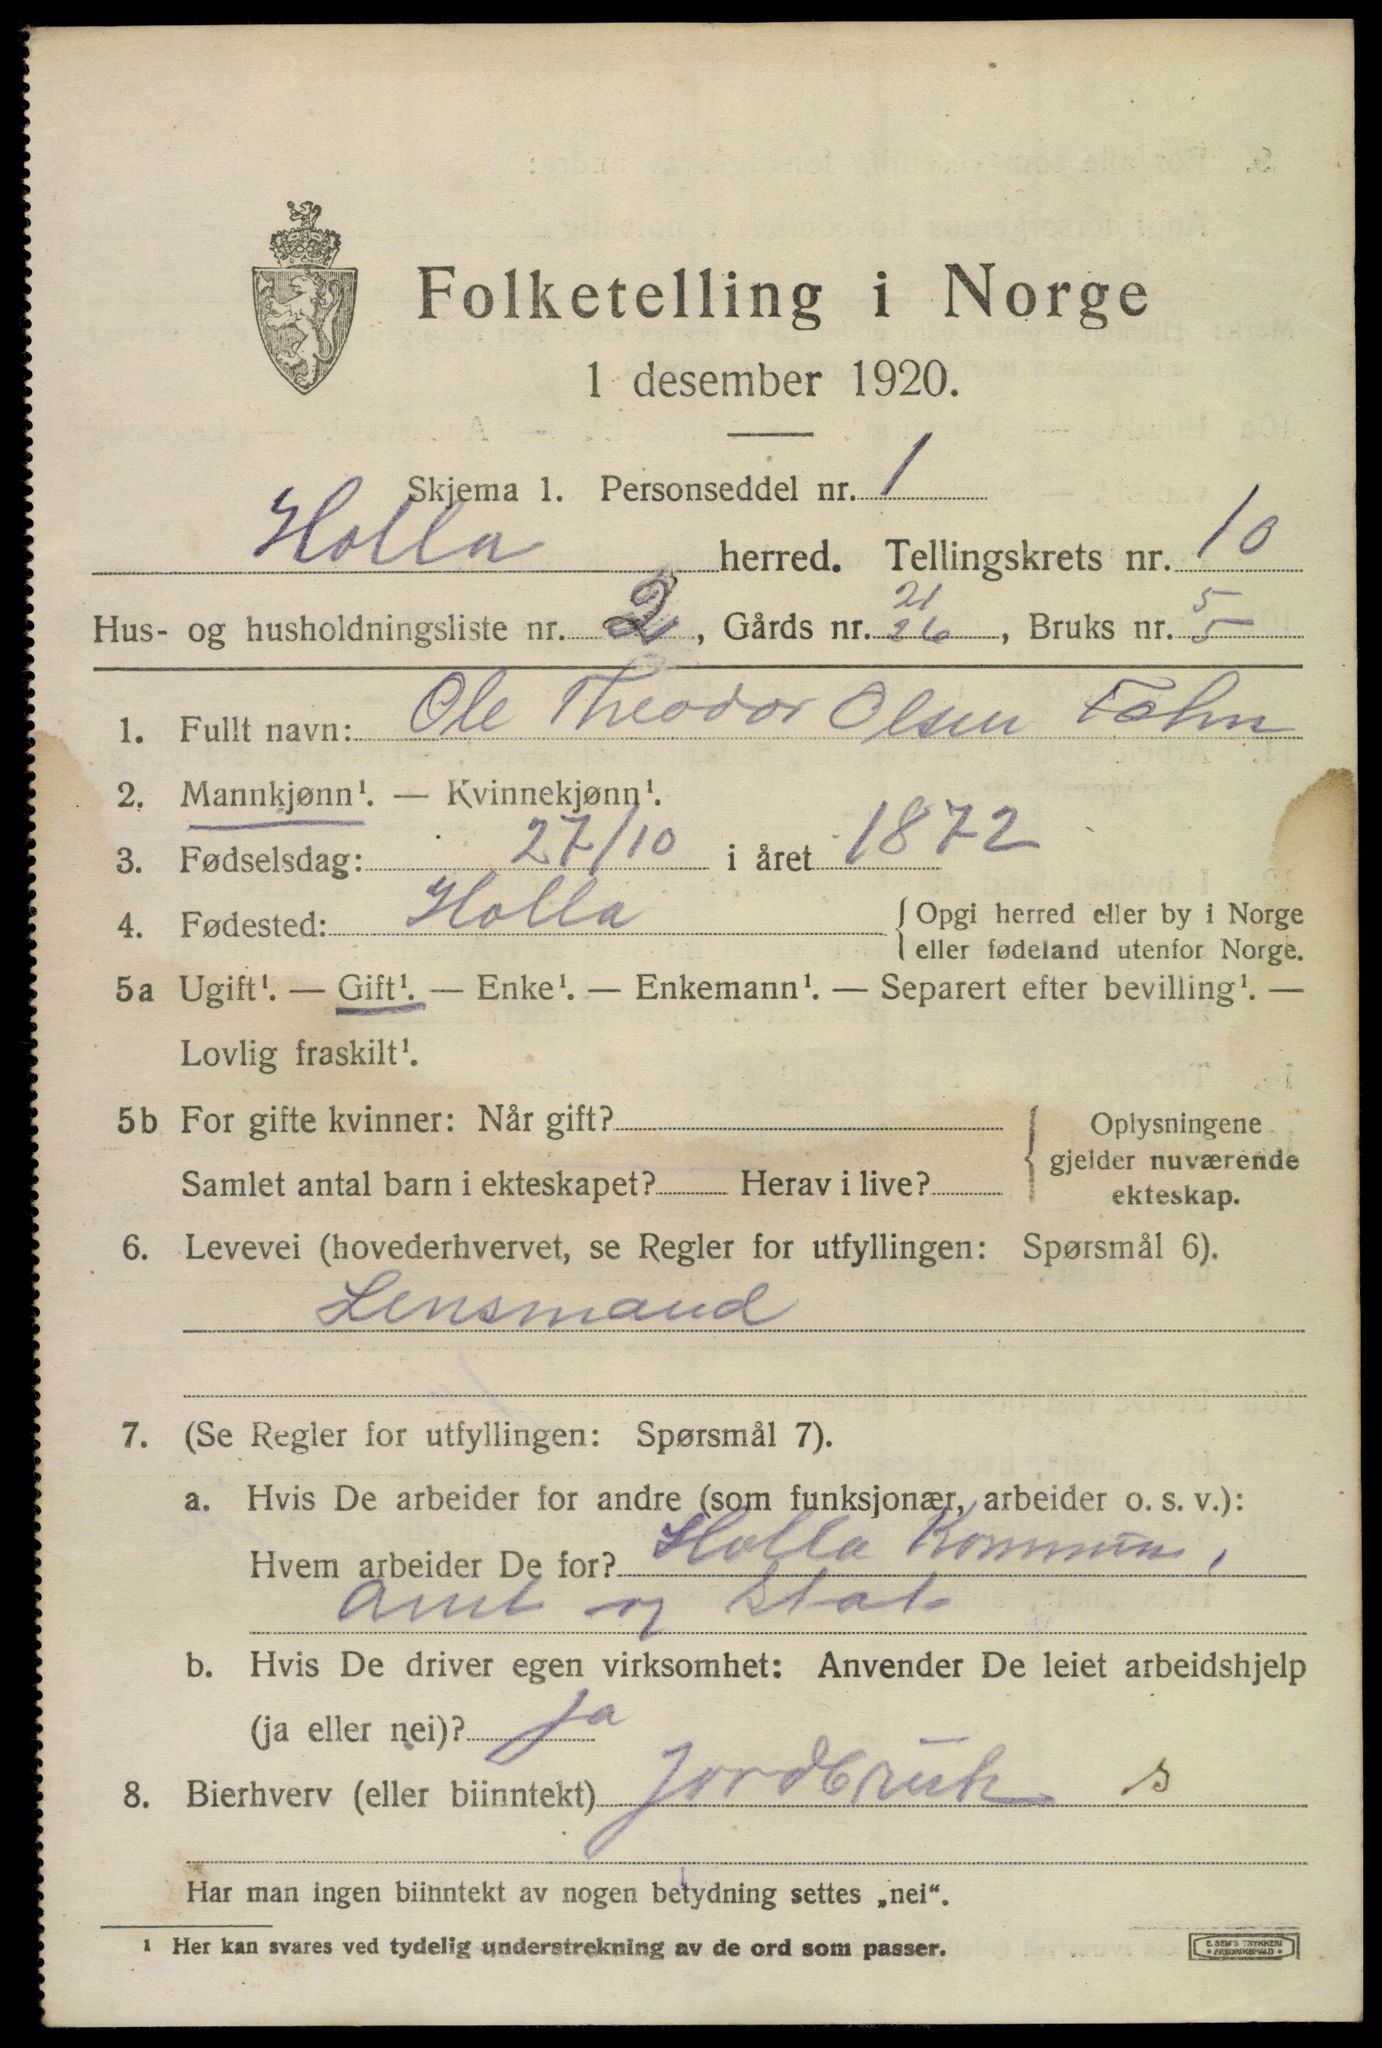 Folketelling i Norge
1 desember 1920.
Skjema 1. Personseddel nr. 1
Holla herred. Tellingskrets nr. 10
21 5
Hus- og husholdningsliste nr. 2, Gårds nr. 26, Bruks nr. 5
1. Fullt navn: Ole Theodor Olsen
2. Mannkjønn¹. — Kvinnekjønn¹.
3. Fødselsdag: 27/10 i året 1872
4. Fødested: Holla { Opgi herred eller by i Norge
eller fødeland utenfor Norge.
5a Ugift¹. — Gift¹. — Enke¹. — Enkemann¹. — Separert efter bevilling¹. —
Lovlig fraskilt¹.
5b For gifte kvinner: Når gift? { Oplysningene
gjelder nuværende
Samlet antal barn i ekteskapet? Herav i live? ekteskap.
6. Levevei (hovederhvervet, se Regler for utfyllingen: Spørsmål 6).
Lensmand
7. (Se Regler for utfyllingen: Spørsmål 7).
a. Hvis De arbeider for andre (som funksjonær, arbeider o. s. v.):
Hvem arbeider De for? Holla Kommune,
Amt og Stat
b. Hvis De driver egen virksomhet: Anvender De leiet arbeidshjelp
(ja eller nei)? ja
8. Bierhverv (eller biinntekt) Jordbruk s
Har man ingen biinntekt av nogen betydning settes „nei“.
¹ Her kan svares ved tydelig understrekning av de ord som passer.
E. SEM'S TRYKKERI
FREDRIKSHALD